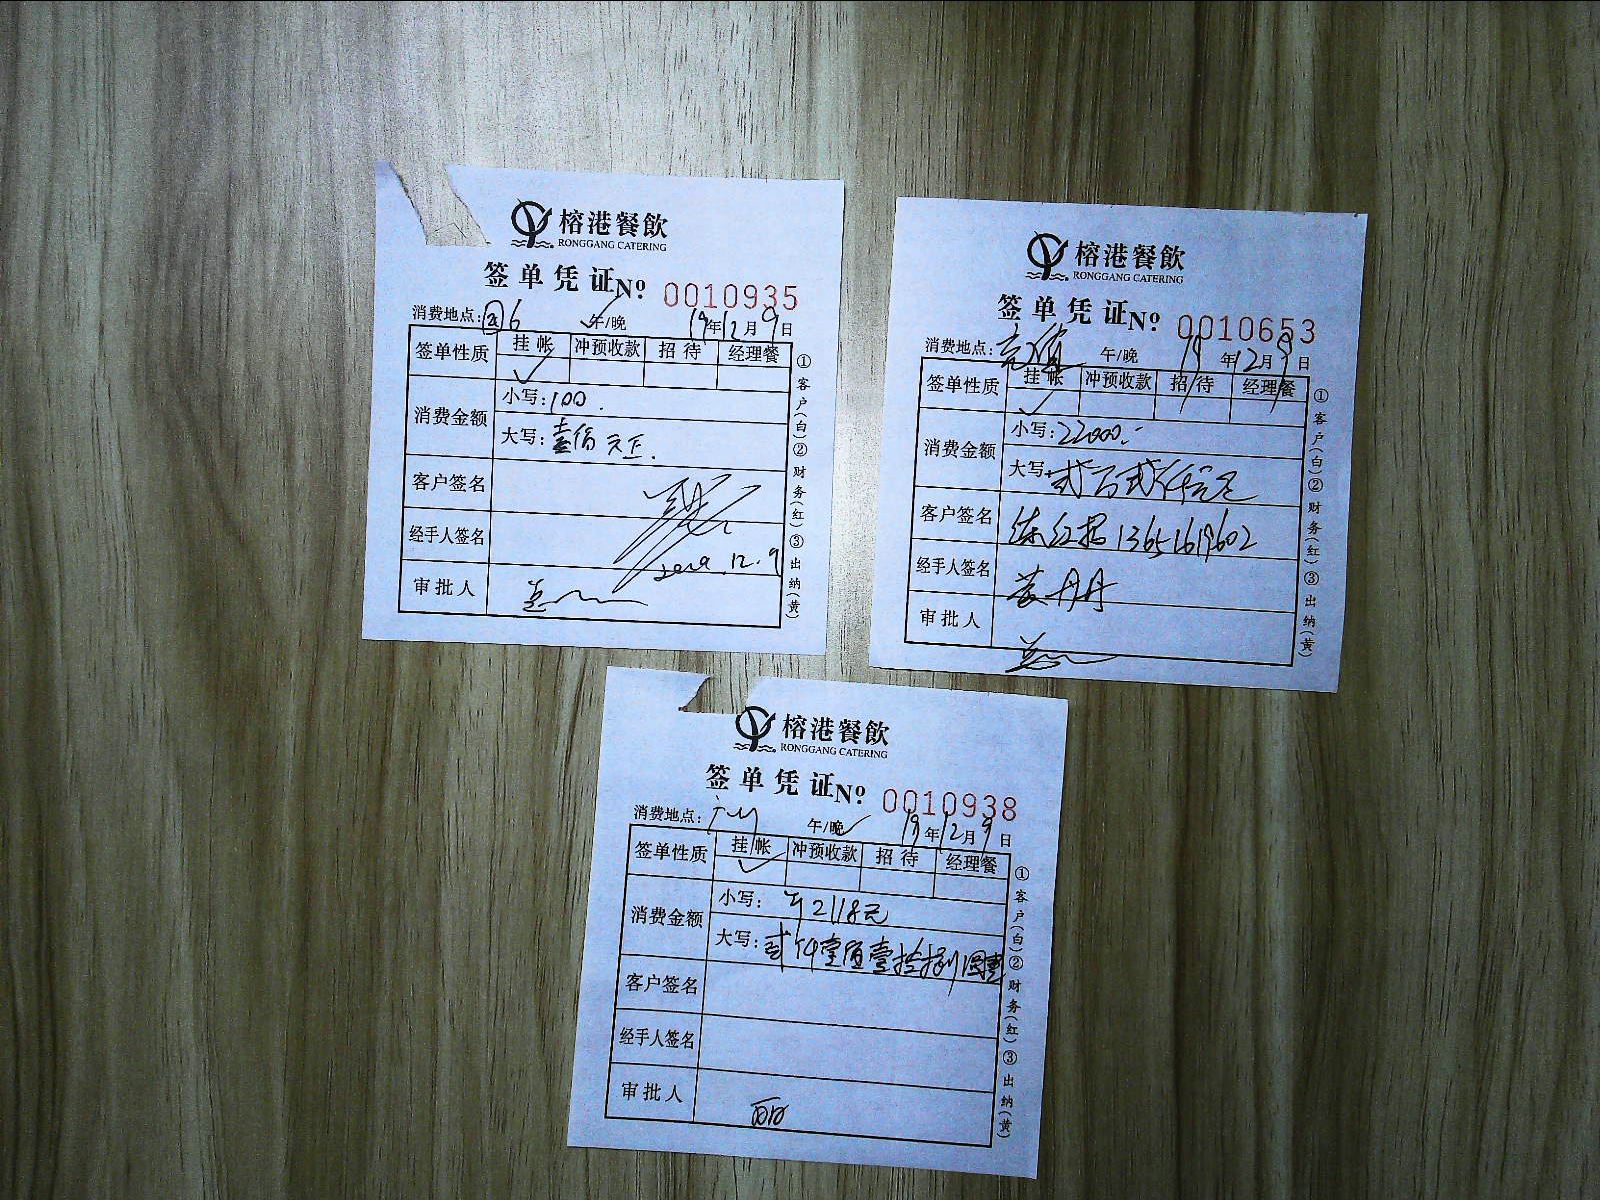 榕港餐飲
RONGGANG CATERING
签单凭证 Nº 0010935
消费地点: 6 午/晚 19年12月9日
签单性质 挂帐 冲预收款 招待 经理餐
消费金额 小写:100.
大写:壹佰元正.
客户签名
经手人签名 2019.12.9
审批人
①客户(白)②财务(红)③出纳(黄)
榕港餐飲
RONGGANG CATERING
签单凭证 Nº 0010653
消费地点: 午/晚 19年12月9日
签单性质 挂帐 冲预收款 招待 经理餐
消费金额 小写:22000.-
大写
客户签名 练红招 13651619602
经手人签名 丹丹
审批人
①客户(白)②财务(红)③出纳(黄)
榕港餐飲
RONGGANG CATERING
签单凭证 Nº 0010938
消费地点: 午/晚 19年12月9日
签单性质 挂帐 冲预收款 招待 经理餐
消费金额 小写: ¥2118元
大写:贰仟壹佰壹拾捌圆整
客户签名
经手人签名
审批人
①客户(白)②财务(红)③出纳(黄)